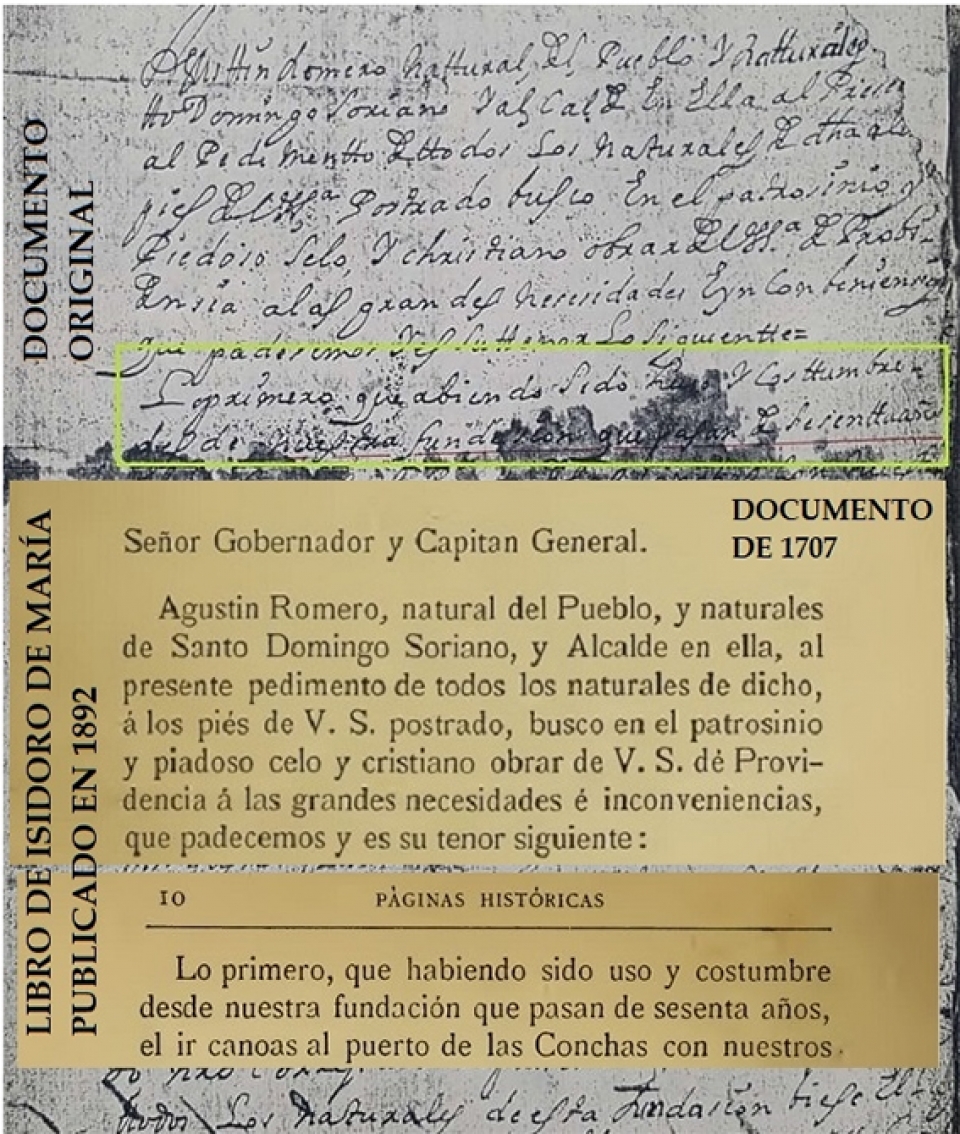 DOCUMENTO
ORIGINAL
Agusttin Romero nattural, del, Pueblo Y natturales
tto Domingo Soriano Y al Cal de En Ella al Presen
al Pedimentto de ttodos Los naturales de dha ale
pies de Postrado busco En el patrosinio y
Piedoso Selo, Y christiano obrar de de Probi-
densia alas grandes necesidades Eyn Combeniensias
que padesemos Y es su ttenor Lo siguientte=
Lo primero que abiendo sido huso Y Costtumbre-
desde nuestra fundasion que pasan de sesentta años
Señor Gobernador y Capitan General.
DOCUMENTO
DE 1707
Agustin Romero, natural del Pueblo, y naturales
de Santo Domingo Soriano, y Alcalde en ella, al
presente pedimento de todos los naturales de dicho,
á los piés de V. S. postrado, busco en el patrosinio
y piadoso celo y cristiano obrar de V. S. dé Provi-
dencia á las grandes necesidades é inconveniencias,
que padecemos y es su tenor siguiente:
LIBRO DE ISIDORO DE MARÍA
PUBLICADO EN 1892
10 PÀGINAS HISTÓRICAS
Lo primero, que habiendo sido uso y costumbre
desde nuestra fundación que pasan de sesenta años,
el ir canoas al puerto de las Conchas con nuestros
ttodos Los Naturales de esta fundasion